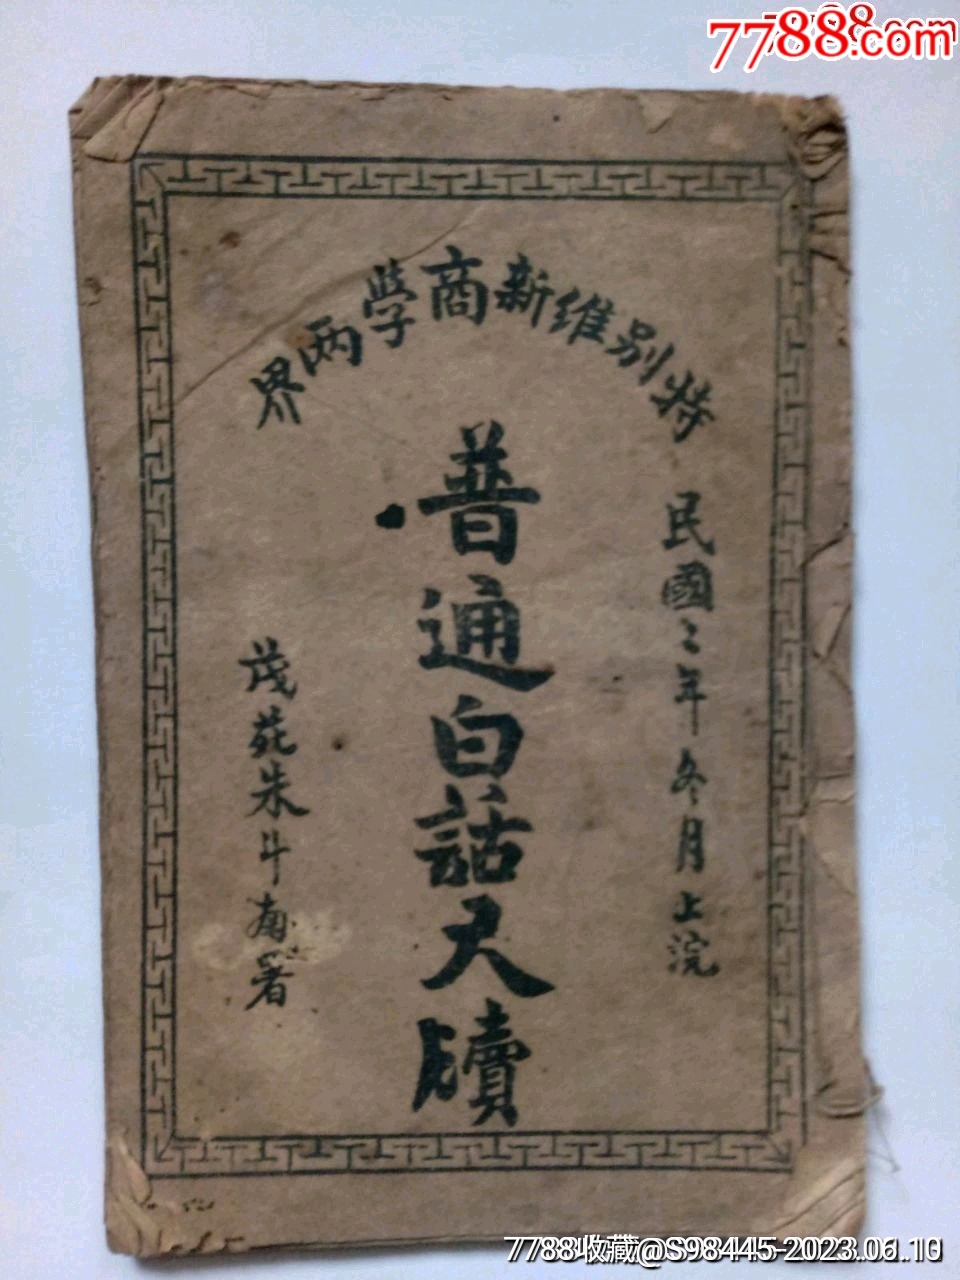 7788.com
特别維新商學两界
民國二年冬月上浣
普通白話尺牘
茂苑朱斗南署
7788收藏@S98445-2023.06.10